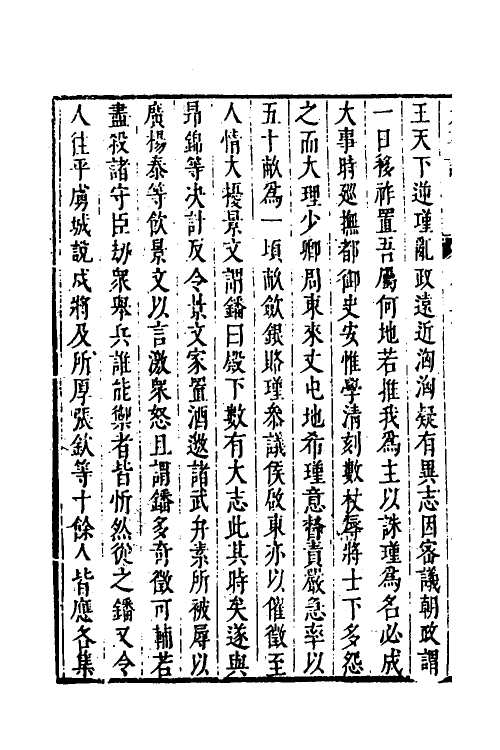 王天下逆瑾亂政遠近洶洶疑有異志因密議朝政謂
一日移祚置吾屬何地若推我爲主以誅瑾爲名必成
大事時廵撫都御史安惟學清刻數杖辱將士下多怨
之而大理少卿周東來丈屯地希瑾意督責嚴急率以
五十畝爲一頃畝斂銀賂瑾叅議侯啟東亦以催徵至
人情大擾景文謂鐇曰殿下數有大志此其時矣遂與
昻錦等决計反令景文家置酒邀諸武弁素所被辱以
廣楊泰等飲景文以言激衆怒且謂鐇多竒徵可輔若
盡殺諸守臣刼衆舉兵誰能禦者皆忻然從之鐇又令
人往平虜城說戍將及所厚張欽等十餘人皆應各集